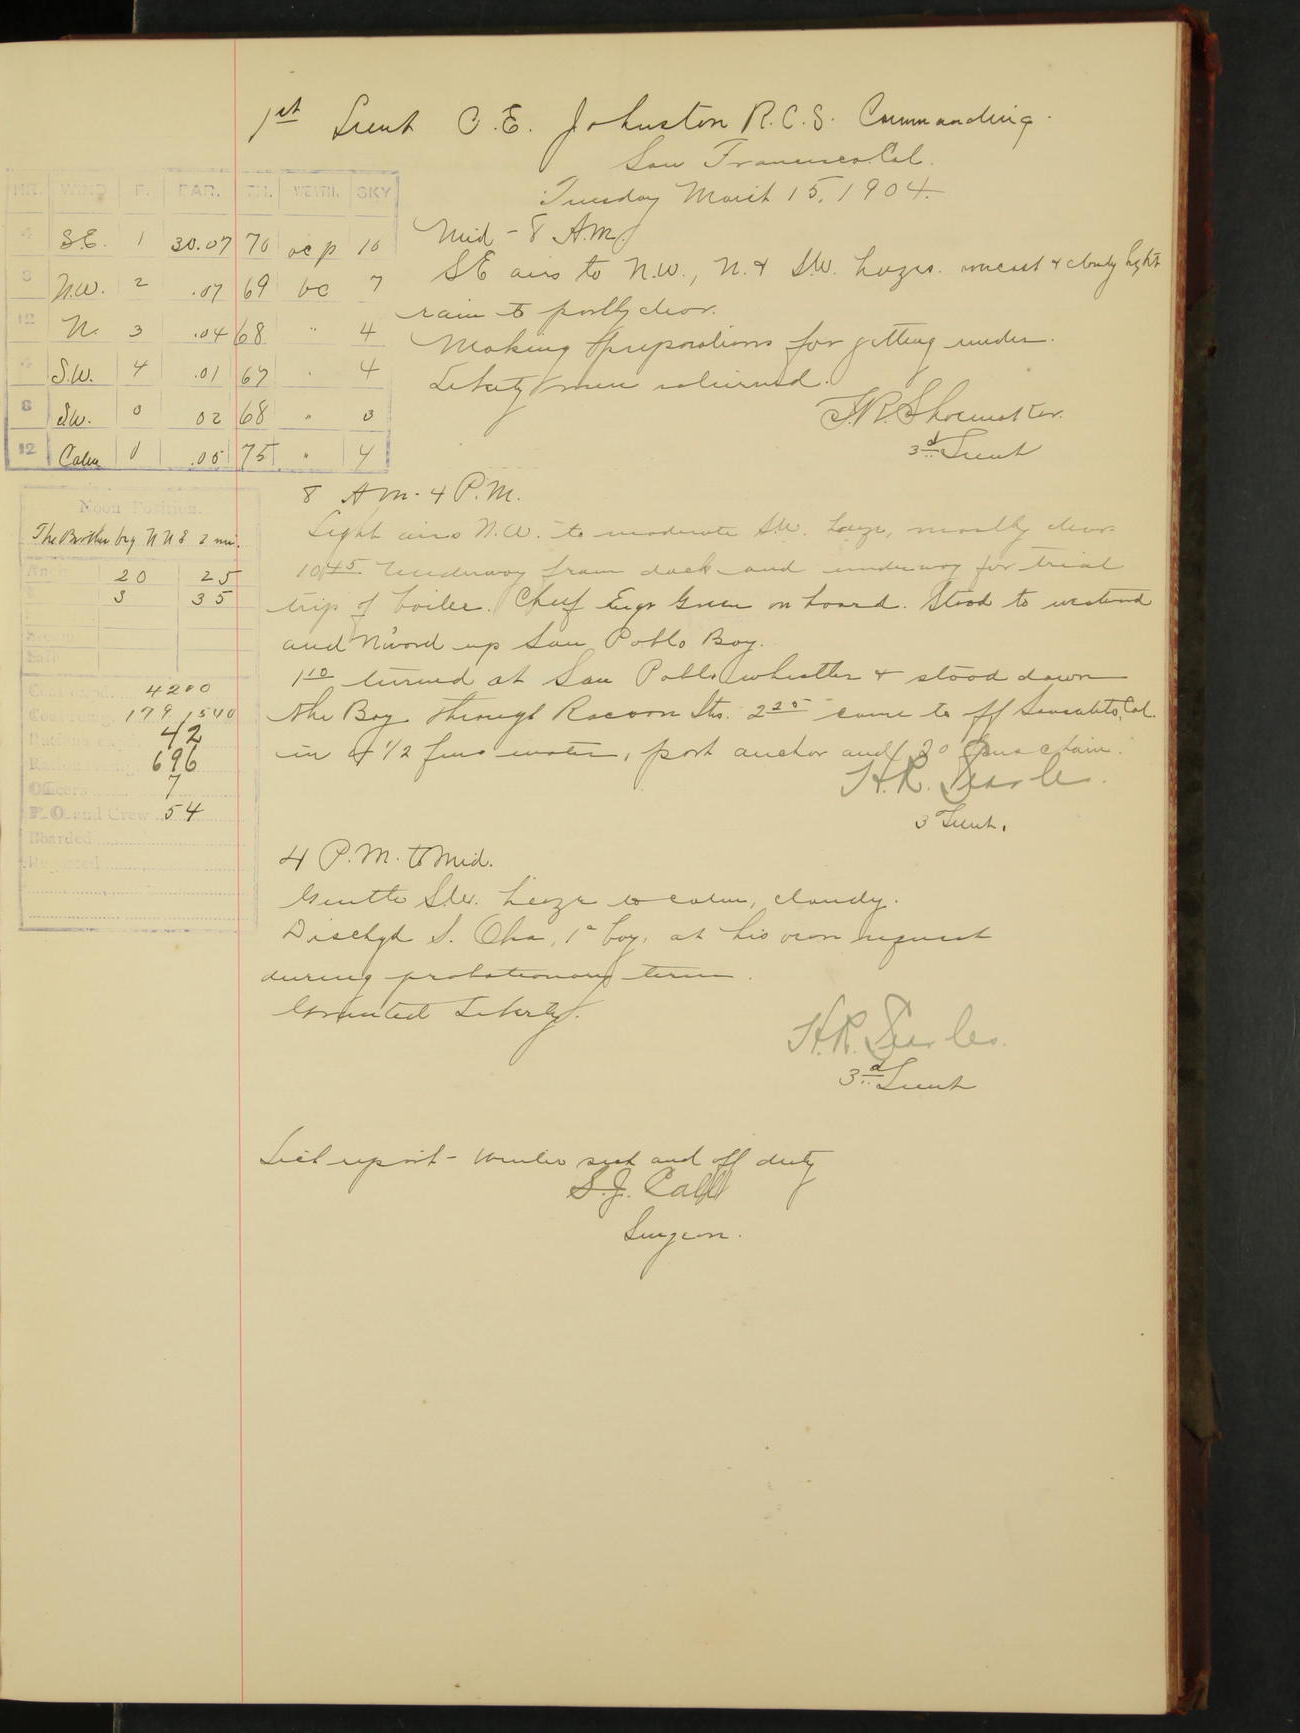 1st Lieut C. E. Johnston R.C.S. Commanding.
San Francisco, Cal.
Tuesday March 15, 1904.
HR. WIND F. BAR. TH. WETH. SKY
4 S.E. 1 30.07 70 ocp 10
8 N.W. 2 .07 69 bc 7
12 N. 3 .04 68 " 4
4 S.W. 4 .01 67 " 4
8 S.W. 0 02 68 " 3
12 Calm 0 .05 75 " 4
Mid - 8 A.M.
SE airs to N.W., N. & S.W. breezes. overcast & cloudy light
rain to partly clear.
Making preparations for getting under.
Liberty men returned.
F.R. Shoemaker.
3d Lieut
Noon Position.
The Brothers brg NNE 2 mi.
20 25
3 35
4200
179 1540
42
696
Officers 7
P.O. and Crew 54
Boarded
8 A.M. - 4 P.M.
Light airs N.W. to moderate S.W. breeze, mostly clear.
10 45 Underway from dock and underway for trial
trip of boiler. Chief Engr Green on board. Stood to westward
and N'word up San Pablo Bay.
1 10 turned at San Pablo whistler & stood down
the Bay through Racoon Sts. 2 25 came to off Sausalito, Cal.
in 4 1/2 fms water, port anchor and 30 fms chain.
H.R. Searles.
3 Lieut.
4 P.M. to Mid.
Gentle S.W. breeze to calm, cloudy.
Dischgd S. Oka, 1c boy, at his own request
during probationary term.
Granted Liberty.
H.R. Searles.
3d Lieut
Sick report - sick and off duty
S.J. Call
Surgeon.